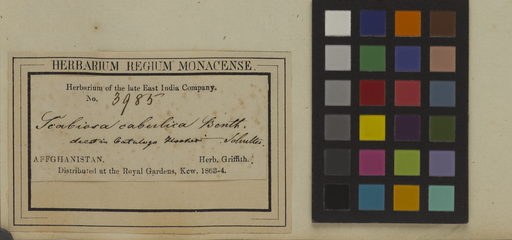 HERBARIUM REGIUM MONACENSE.
Herbarium of the late East India Company.
No. 3985
Scabiosa cabulica Benth.
AFFGHANISTAN. Herb. Griffith.
Distributed at the Royal Gardens, Kew. 1863-4.